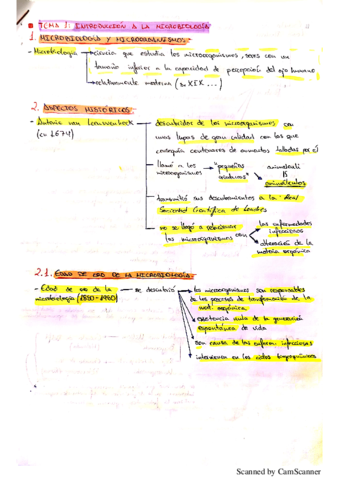 TEMA 1: INTRODUCCIÓN A LA MICROBIOLOGÍA
1. MICROBIOLOGÍA Y MICROORGANISMOS
- Microbiología → ciencia que estudia los microorganismos, seres con un
tamaño inferior a la capacidad de percepción del ojo humano
→ relativamente moderna (s. XIX ...)
2. ASPECTOS HISTÓRICOS
- Antonie van Leeuwenhoek → descubridor de los microorganismos con
(en 1674)
unas lupas de gran calidad con las que
conseguía centenares de aumentos talladas por él
→ llamó a los → "pequeñas animaculi
microorganismos criaturas"
animálculos
→ transmitió sus descubrimientos a la Real
Sociedad Científica de Londres
→ no se llegó a relacionar → las enfermedades
los microorganismos con infecciosas
→ alteración de la
materia orgánica
2.1. EDAD DE ORO DE LA MICROBIOLOGÍA
- Edad de oro de la → se descubrió → los microorganismos son responsables
microbiología (1880-1960) de los procesos de transformación de la
mat. orgánica
→ existencia nula de la generación
espontánea de vida
→ son causa de las enferm. infecciosas
→ intervienen en los ciclos biogeoquímicos
Scanned by CamScanner